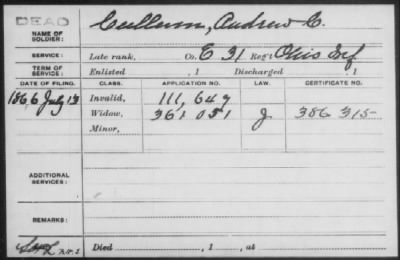 DEAD
NAME OF SOLDIER: Cullum, Andrew C.
SERVICE: Late rank, Co. E 31 Reg't Ohio Inf
TERM OF SERVICE: Enlisted , 1 Discharged , 1
DATE OF FILING. CLASS. APPLICATION NO. LAW. CERTIFICATE NO.
1866 July 13 Invalid, 111,649
Widow, 361 051 J 386 315
Minor,
ADDITIONAL SERVICES:
REMARKS:
Died , 1 , at